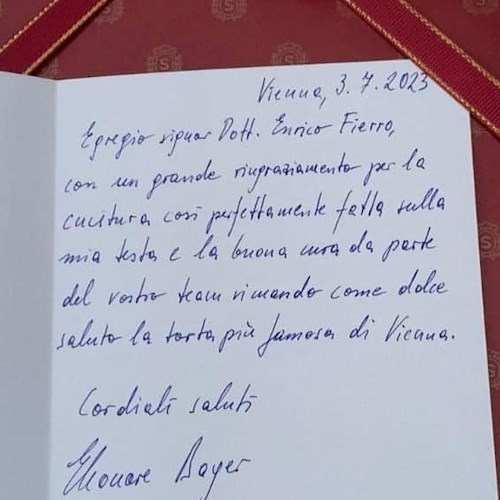 Vienna, 3. 7. 2023
Egregio signor Dott. Enrico Fierro,
con un grande ringraziamento per la
cucitura così perfettamente fatta sulla
mia testa e la buona cura da parte
del vostro team rimando come dolce
saluto la torta più famosa di Vienna.
Cordiali saluti
Eleonore Bayer